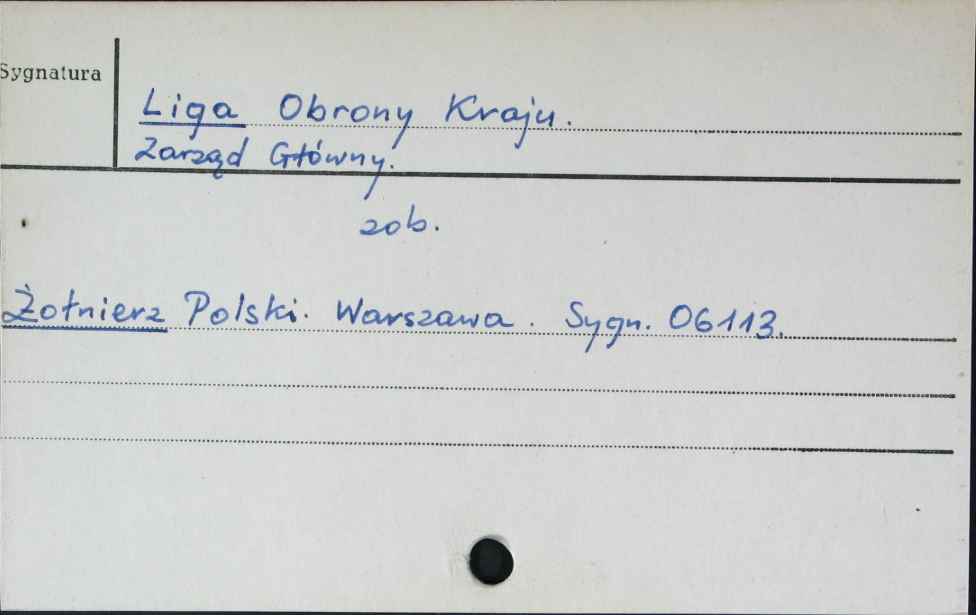 Sygnatura
Liga Obrony Kraju.
Zarząd Główny.
zob.
Żołnierz Polski. Warszawa. Sygn. 06113.